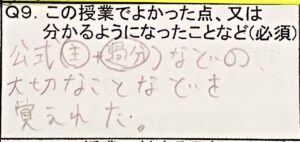 Q9. この授業でよかった点、又は
分かるようになったことなど(必須)
公式(主+過分)などの、
大切なことなどを
覚えれた。